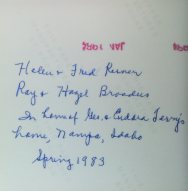 JAN 1984
Helen & Fred Reiner
Ray & Hazel Broaders
In home of Geo. & Eudora Terry's
home, Nampa, Idaho
Spring 1983